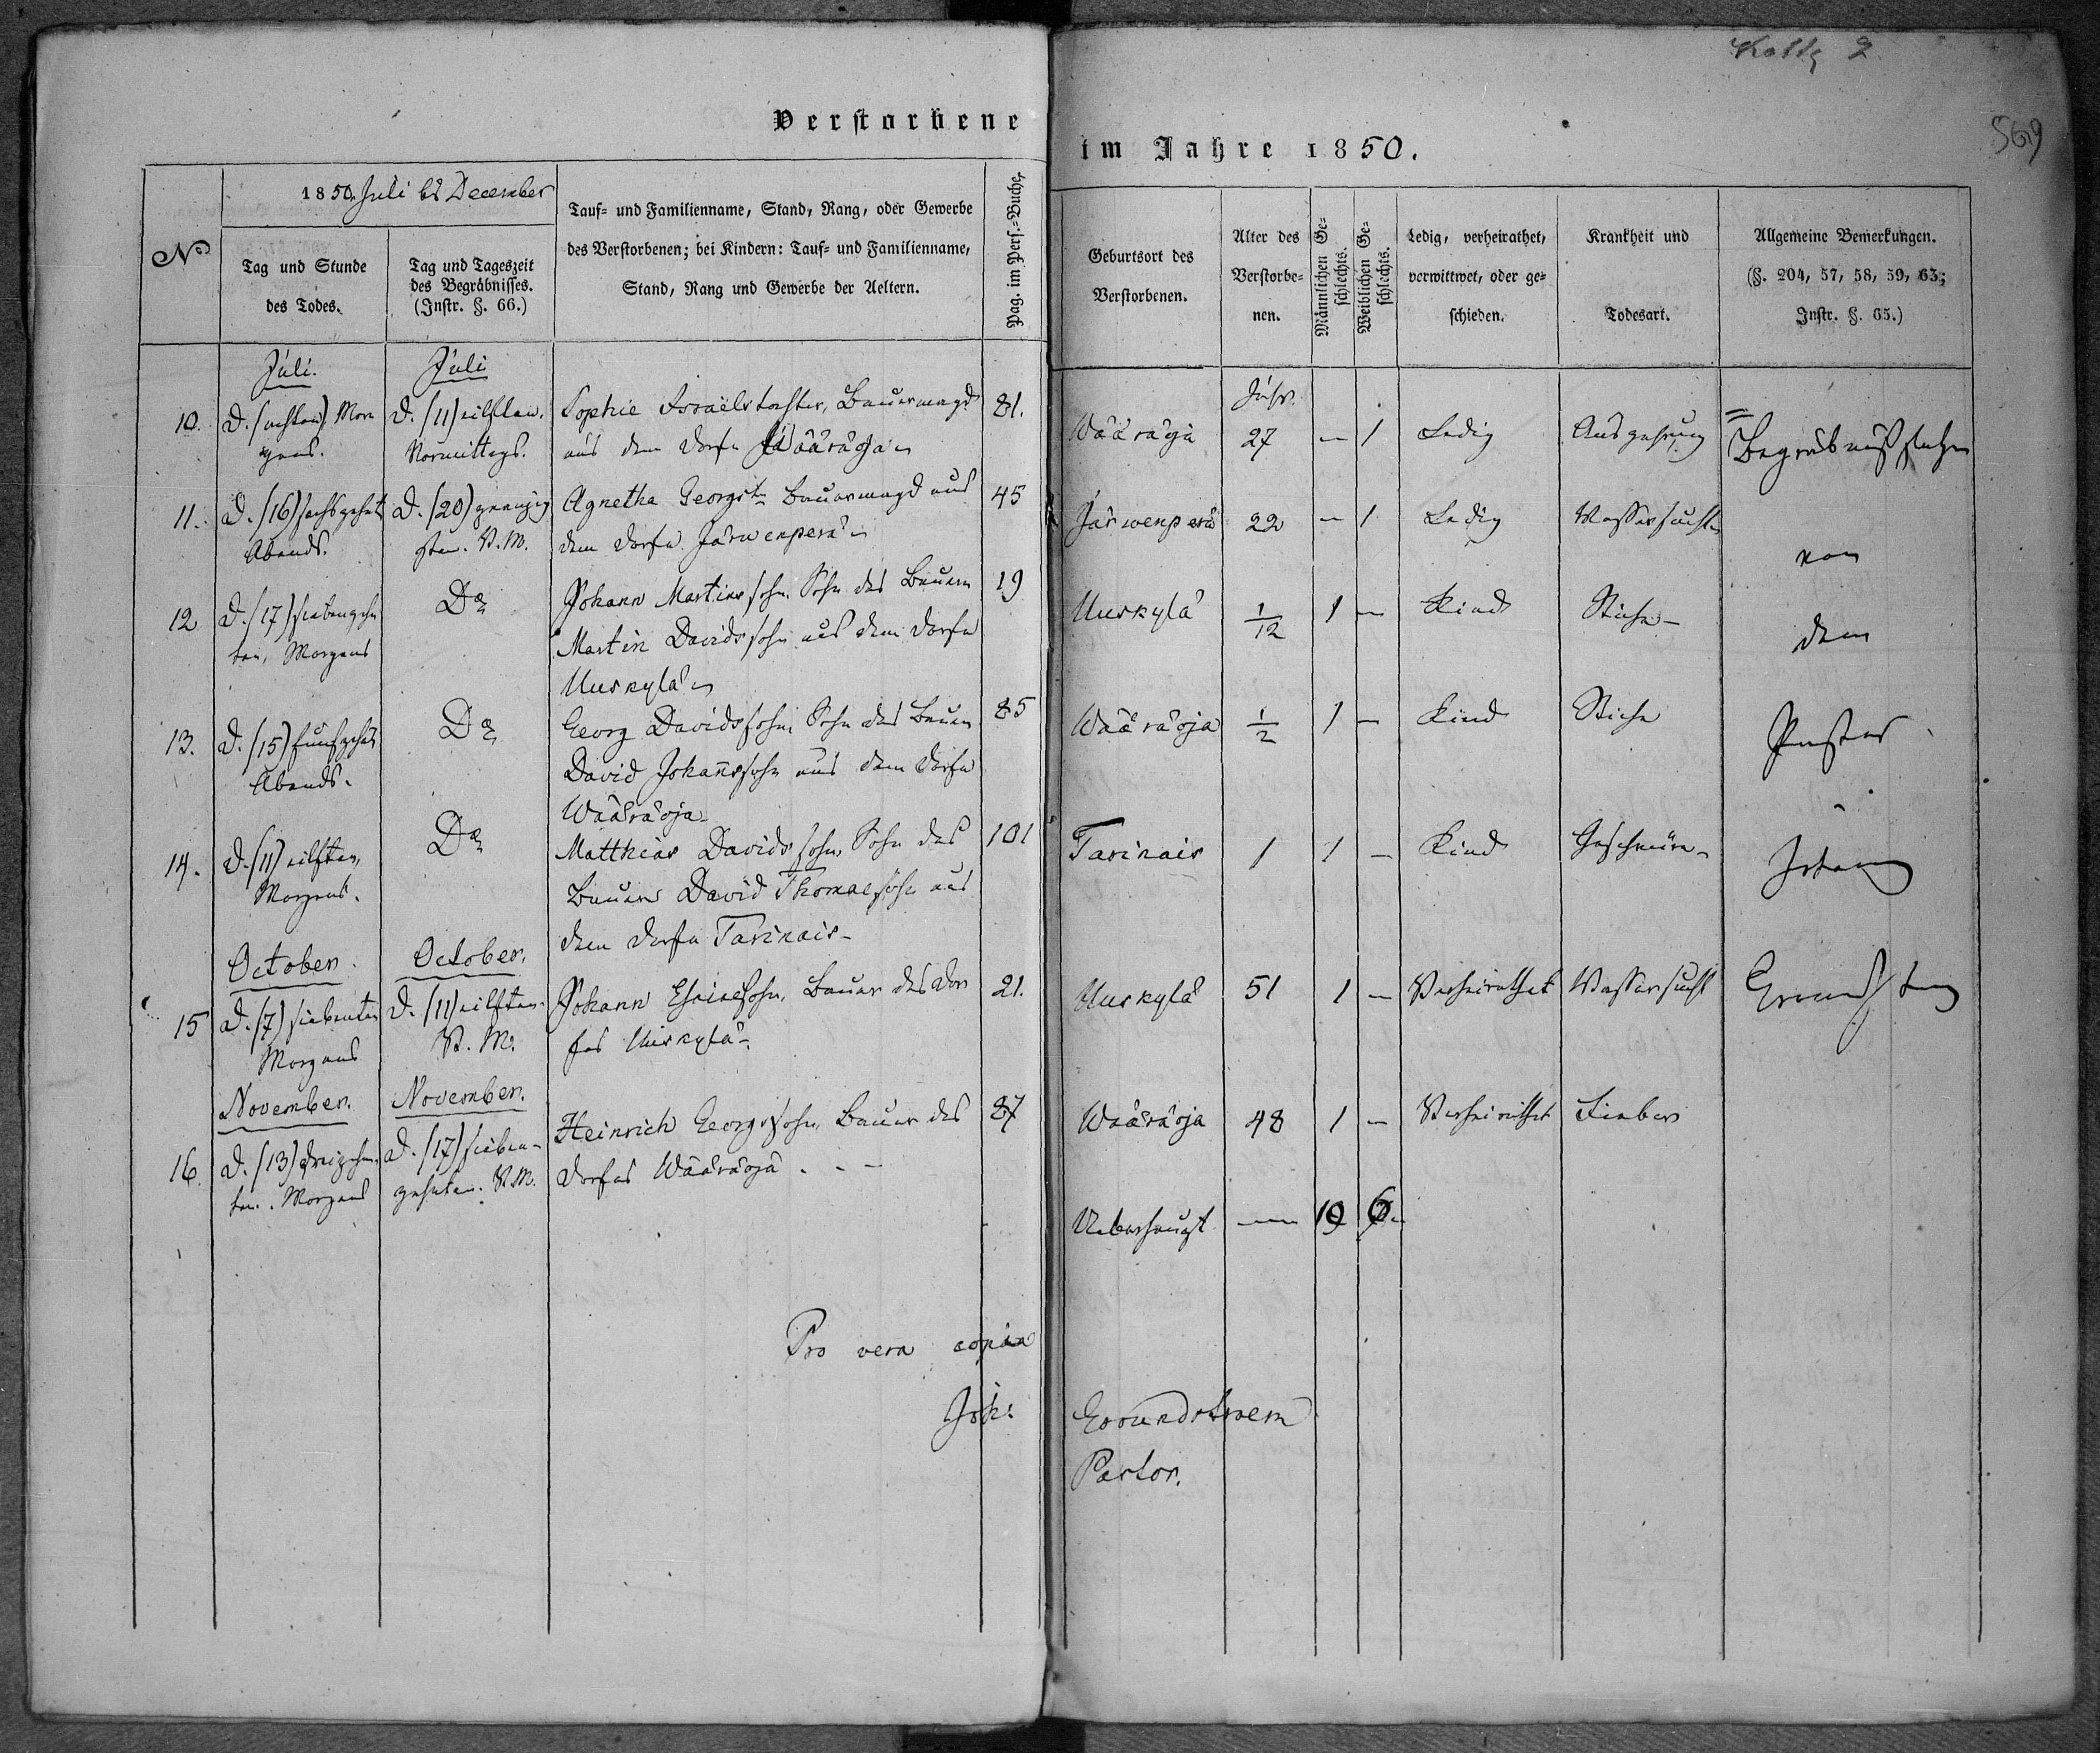 Koltz 2
569
Verstorbene im Jahre 1850.
1850. Juli bis December
No
Tag und Stunde des Todes.
Tag und Tageszeit des Begräbnisses. (Instr. §. 66.)
Tauf- und Familienname, Stand, Rang, oder Gewerbe
des Verstorbenen; bei Kindern: Tauf- und Familienname,
Stand, Rang und Gewerbe der Aeltern.
Pag. im Pers.-Buche.
Geburtsort des Verstorbenen.
Alter des Verstorbenen.
Männlichen Geschlechts.
Weiblichen Geschlechts.
Ledig, verheirathet, verwittwet, oder geschieden.
Krankheit und Todesart.
Allgemeine Bemerkungen.
(§. 204, 57, 58, 59, 63; Instr. §. 65.)
Juli. Juli Jahr.
10. D. (achten) Mor D. (11) eilften. Sophie Israëlstochter, Bauermagd 81. Wääräoja 27 – 1 Ledig Auszehrung Begräbniß stehen
gens. Vormittags. aus dem Dorfe Wääräoja
11. D. (16) sechszehnt D. (20) zwanzig Agnetha Georgstr Bauermagd aus 45 Järwenperä 22 – 1 Ledig Wassersucht
Abends. sten. V. M. dem Dorfe Järwenperä von
12 D. (17) siebenzehn Do Johann Martinssohn, Sohn des Bauern 19 Uuskylä 1/12 1 – Kind Stiche
ten, Morgens Martin Davidssohn aus dem Dorfe dem
Uuskylä
13. D. (15) fünfzehnt Do Georg Davidssohn, Sohn des Bauern 85 Wääräoja 1/2 1 – Kind Stiche Pastor
Abends. David Johannssohn aus dem Dorfe
Wääräoja
14. D. (11) eilften, Do Matthias Davidssohn, Sohn des 101 Tarinais 1 1 – Kind Geschwüre
Morgens. Bauern David Thomassohn aus
dem Dorfe Tarinais
October. October.
15 D. (7) siebenten D. (11) eilften Johann Bauer des Dor 21. Uuskylä 51 1 – Verheirathet Wassersucht
Morgens V. M. fes Uuskylä
November. November.
16. D. (13) dreizehn D. (17) sieben- Heinrich Georgssohn, Bauer des 87 Wääräoja 48 1 – Verheirathet Fieber
ten. Morgens zehnten. V. M. Dorfes Wääräoja
Ueberhaupt — 10 6
Pro vera copia
Joh: Grundstroem
Pastor.